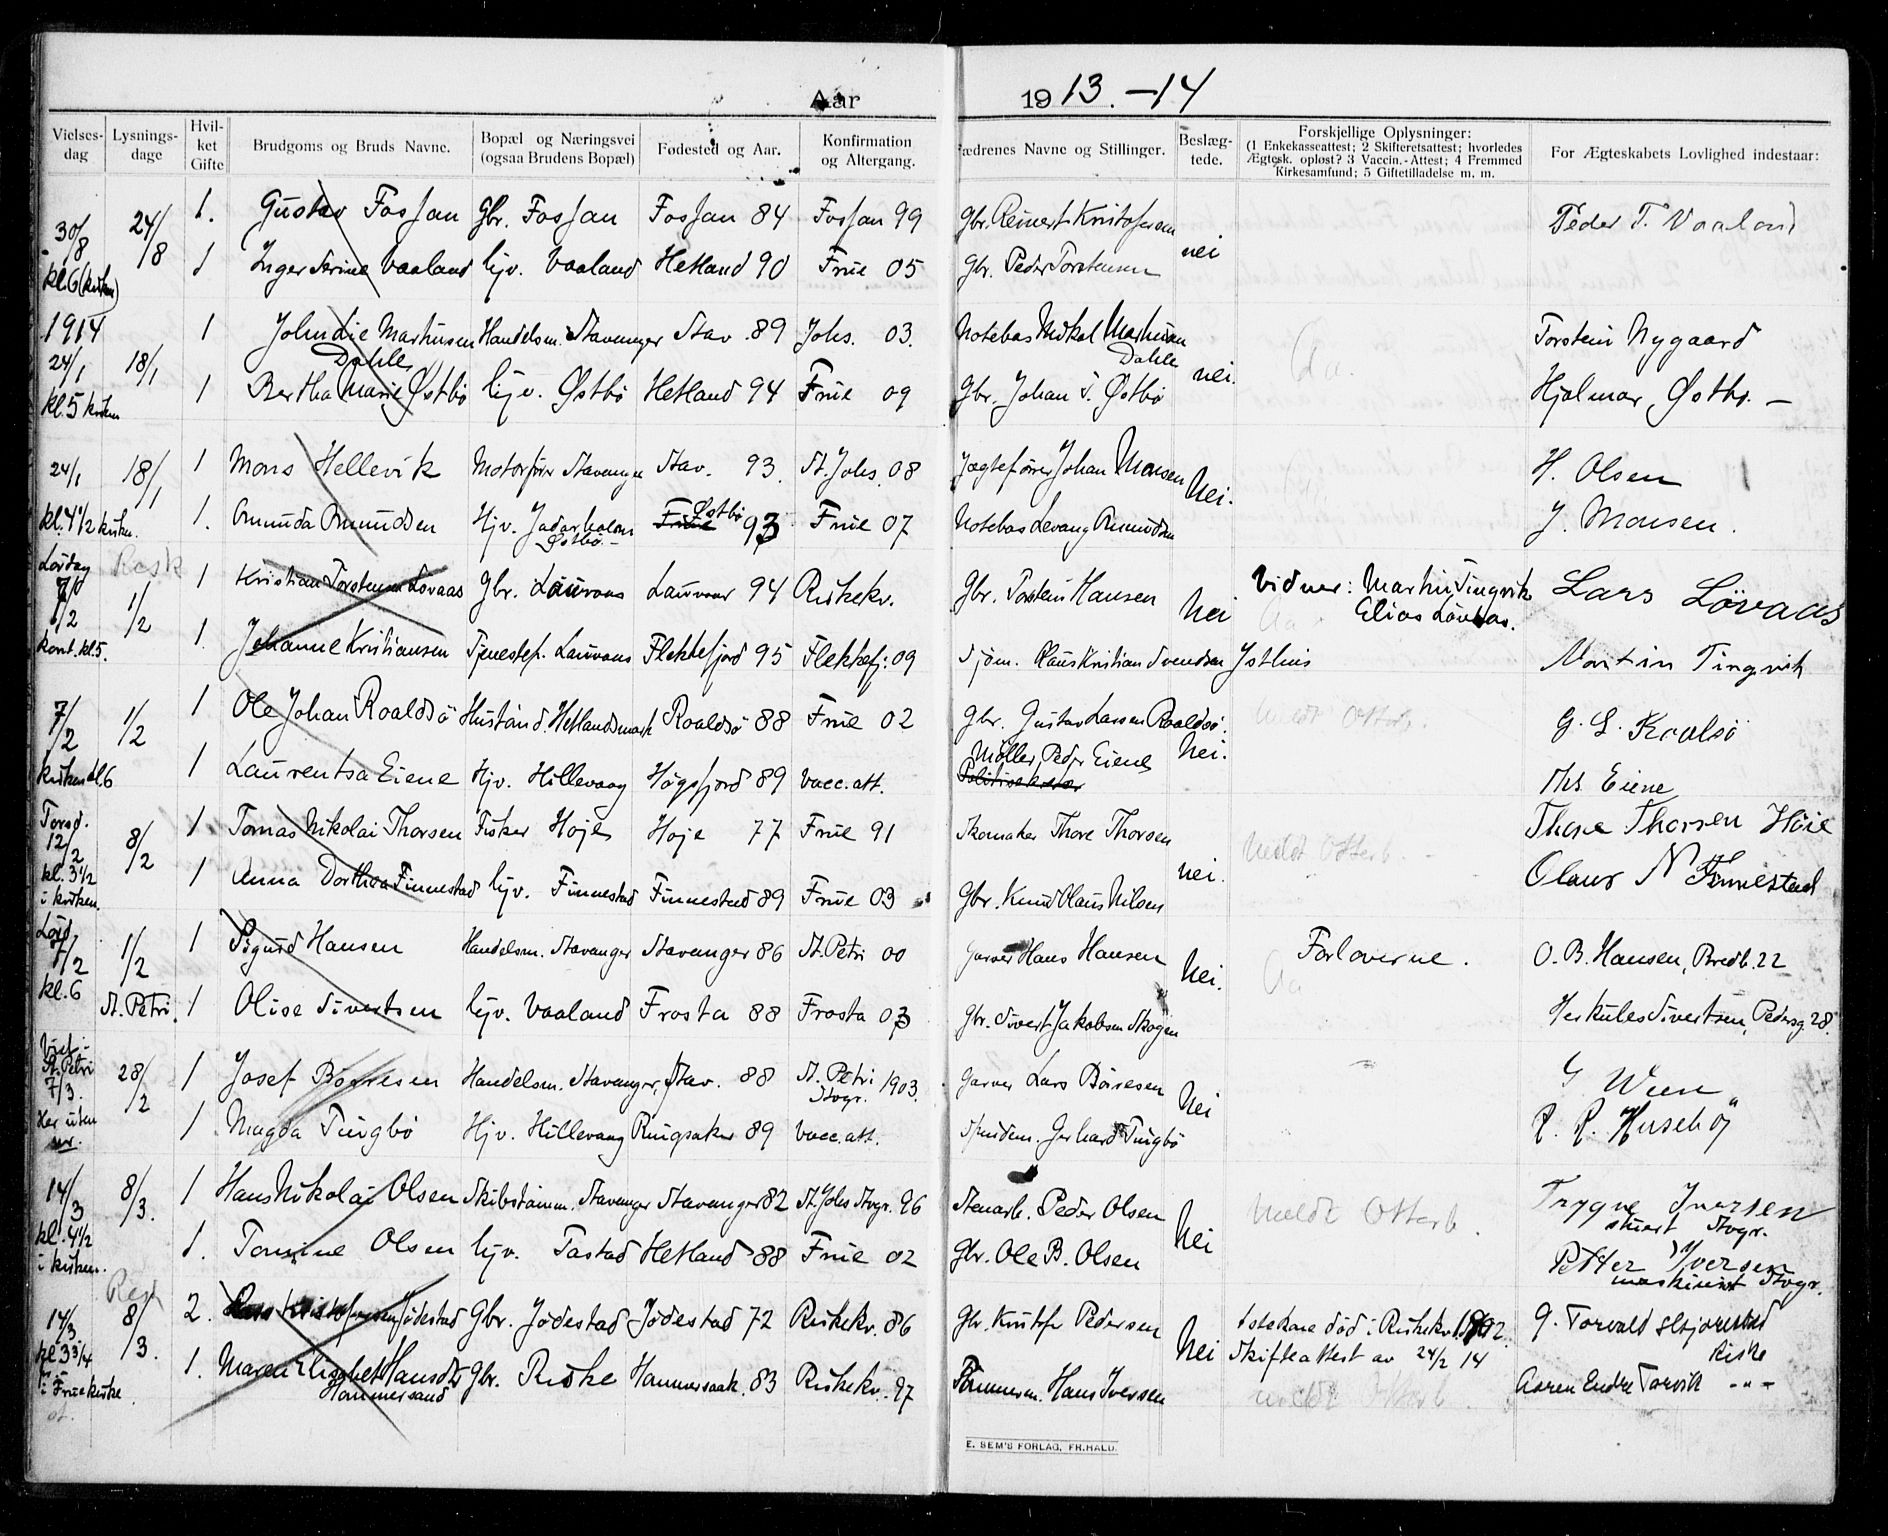 Aar 1913.-14
Vielses-dag Lysnings-dage Hvil-ket Gifte Brudgoms og Bruds Navne. Bopæl og Næringsvei (ogsaa Brudens Bopæl) Fødested og Aar. Konfirmation og Altergang. Fædrenes Navne og Stillinger. Beslæg-tede. Forskjellige Oplysninger: (1 Enkekasseattest; 2 Skifteretsattest; hvorledes Ægtesk. opløst? 3 Vaccin.-Attest; 4 Fremmed Kirkesamfund; 5 Giftetilladelse m. m. For Ægteskabets Lovlighed indestaar:
30/8 24/8 1. Gustav Fosjan Gbr. Fosjan Fosjan 84 Fosjan 99 Gbr. Reinert Kristofersen nei Peder T. Vaaland
kl. 6 (kirken) 1 Inger Serine Vaaland Hjv. Vaaland Hetland 90 Frue 05 Gbr. Peder Torstensen
1914
24/1 18/1 1 John Lie Markusen Dahle Handelsm. Stavanger Stav. 89 Johs. 03. Notebas Mikal Dahle nei. Torstein Nygaard
kl. 5 kirken 1 Bertha Marie Østbö Hjv. Østbö Hetland 94 Frue 09 Gbr. Johan S. Østbö Hjalmar Østbö. —
24/1 18/1 1 Mons Hellevik Motorfører Stavanger Stav. 93. St. Johs. 08 Jægtefører Johan Monsen Nei. H. Olsen
kl. 4 1/2 kirken. 1. Omunda Omundsen Hjv. Jadarholm Østbö. Østbö 93 Frue 07 Notebas Levang Omundsen J. Monsen.
Lördag 7/2 1/2 1 Kristian Torstensen Lovaas Gbr. Lauvaas Lauvaas 94 Riskekv. Gbr. Torstein Hansen Nei Vidner: Martin Tingvik Elias Lövaas. Lars Lövaas
kont. kl 5. 1. Johanne Kristiansen Tjenestep. Lauvaas Flekkefjord 95 Flekkefj. 09 Sjöm. Claus Kristian Svendsen Jsthus Martin Tingvik
7/2 1/2 1 Ole Johan Roaldsö Hustand. Hetlandsmark Roaldsö 88 Frue 02 Gbr. Gustav Larsen Roaldsö. Nei. Meldt Otterb. G. L. Roalsö
kirken kl. 6 1 Laurentsa Eiene Hjv. Hillevaag Högsfjord 89 Vacc. att. Möller Peder Eiene Ths Eiene
Torsd. 12/2 8/2 1 Tomas Nikolai Thorsen Fisker Hoje Hoje 77 Frue 91 Skomaker Thore Thorsen nei. Meldt Otterb. Thore Thorsen Höie
kl. 3 1/2 i kirken. 1 Anna Dorthea Finnestad Hjv. Finnestad Finnestad 89 Frue 03 Gbr. Knud Olaus Nilsen Olaus N Finnestad
Lörd. 7/2 1/2 1 Sigurd Hansen Handelsm. Stavanger Stavanger 86 St. Petri 00 Garver Hans Hansen Nei. Forloverne. O. B. Hansen, Bredb. 22
kl. 6 St. Petri. 1 Olise Sivertsen Hjv. Vaaland Frosta 88 Frosta 03 Gbr. Sivert Jakobsen Skogen Herkules Sivertsen, Pedersg. 28.
Viet St. Petri 7/3. 28/2 1 Josef Börresen Handelsm. Stavanger, Stav. 88 St. Petri Stvgr. 1903. Garver Lars Börresen Nei
Her uten nr. 1 Magda Tingbö Hjv. Hillevaag Ringsaker 89 Vacc. att. Gerhard Tingbö R. R. Husebö
14/3 8/3. 1 Hans Nikolai Olsen Skibstömm. Stavanger Stavanger 82 St. Johs Stvgr. 96 Stenarb. Peder Olsen Nei Meldt Otterb. Trygve Iversen stuert Stvgr.
kl. 4 1/2 i kirken. 1. Tomine Olsen Hjv. Tastad Hetland 88 Frue 02 Gbr. Ole B. Olsen Petter Iversen maskinist Stvgr.
14/3 8/3. 2. Kristofersen Jödestad Gbr. Jödestad Jödestad 72 Riskekv. 86 Gbr. Kristofer Pedersen Nei död i Riskekv. Skifteattest av 24/2 14 Torvald Riske
kl 3 3/4 i Fruekirke. 1. Maren Elisabet Hansdtr Hammersand Gbr. Riske Hammersaak. 83 Riskekv. 97 Tömmerm. Hans Iversen meldt Otterb. Aaren Endre Torvik -"-
E. SEM'S FORLAG, FR.HALD.